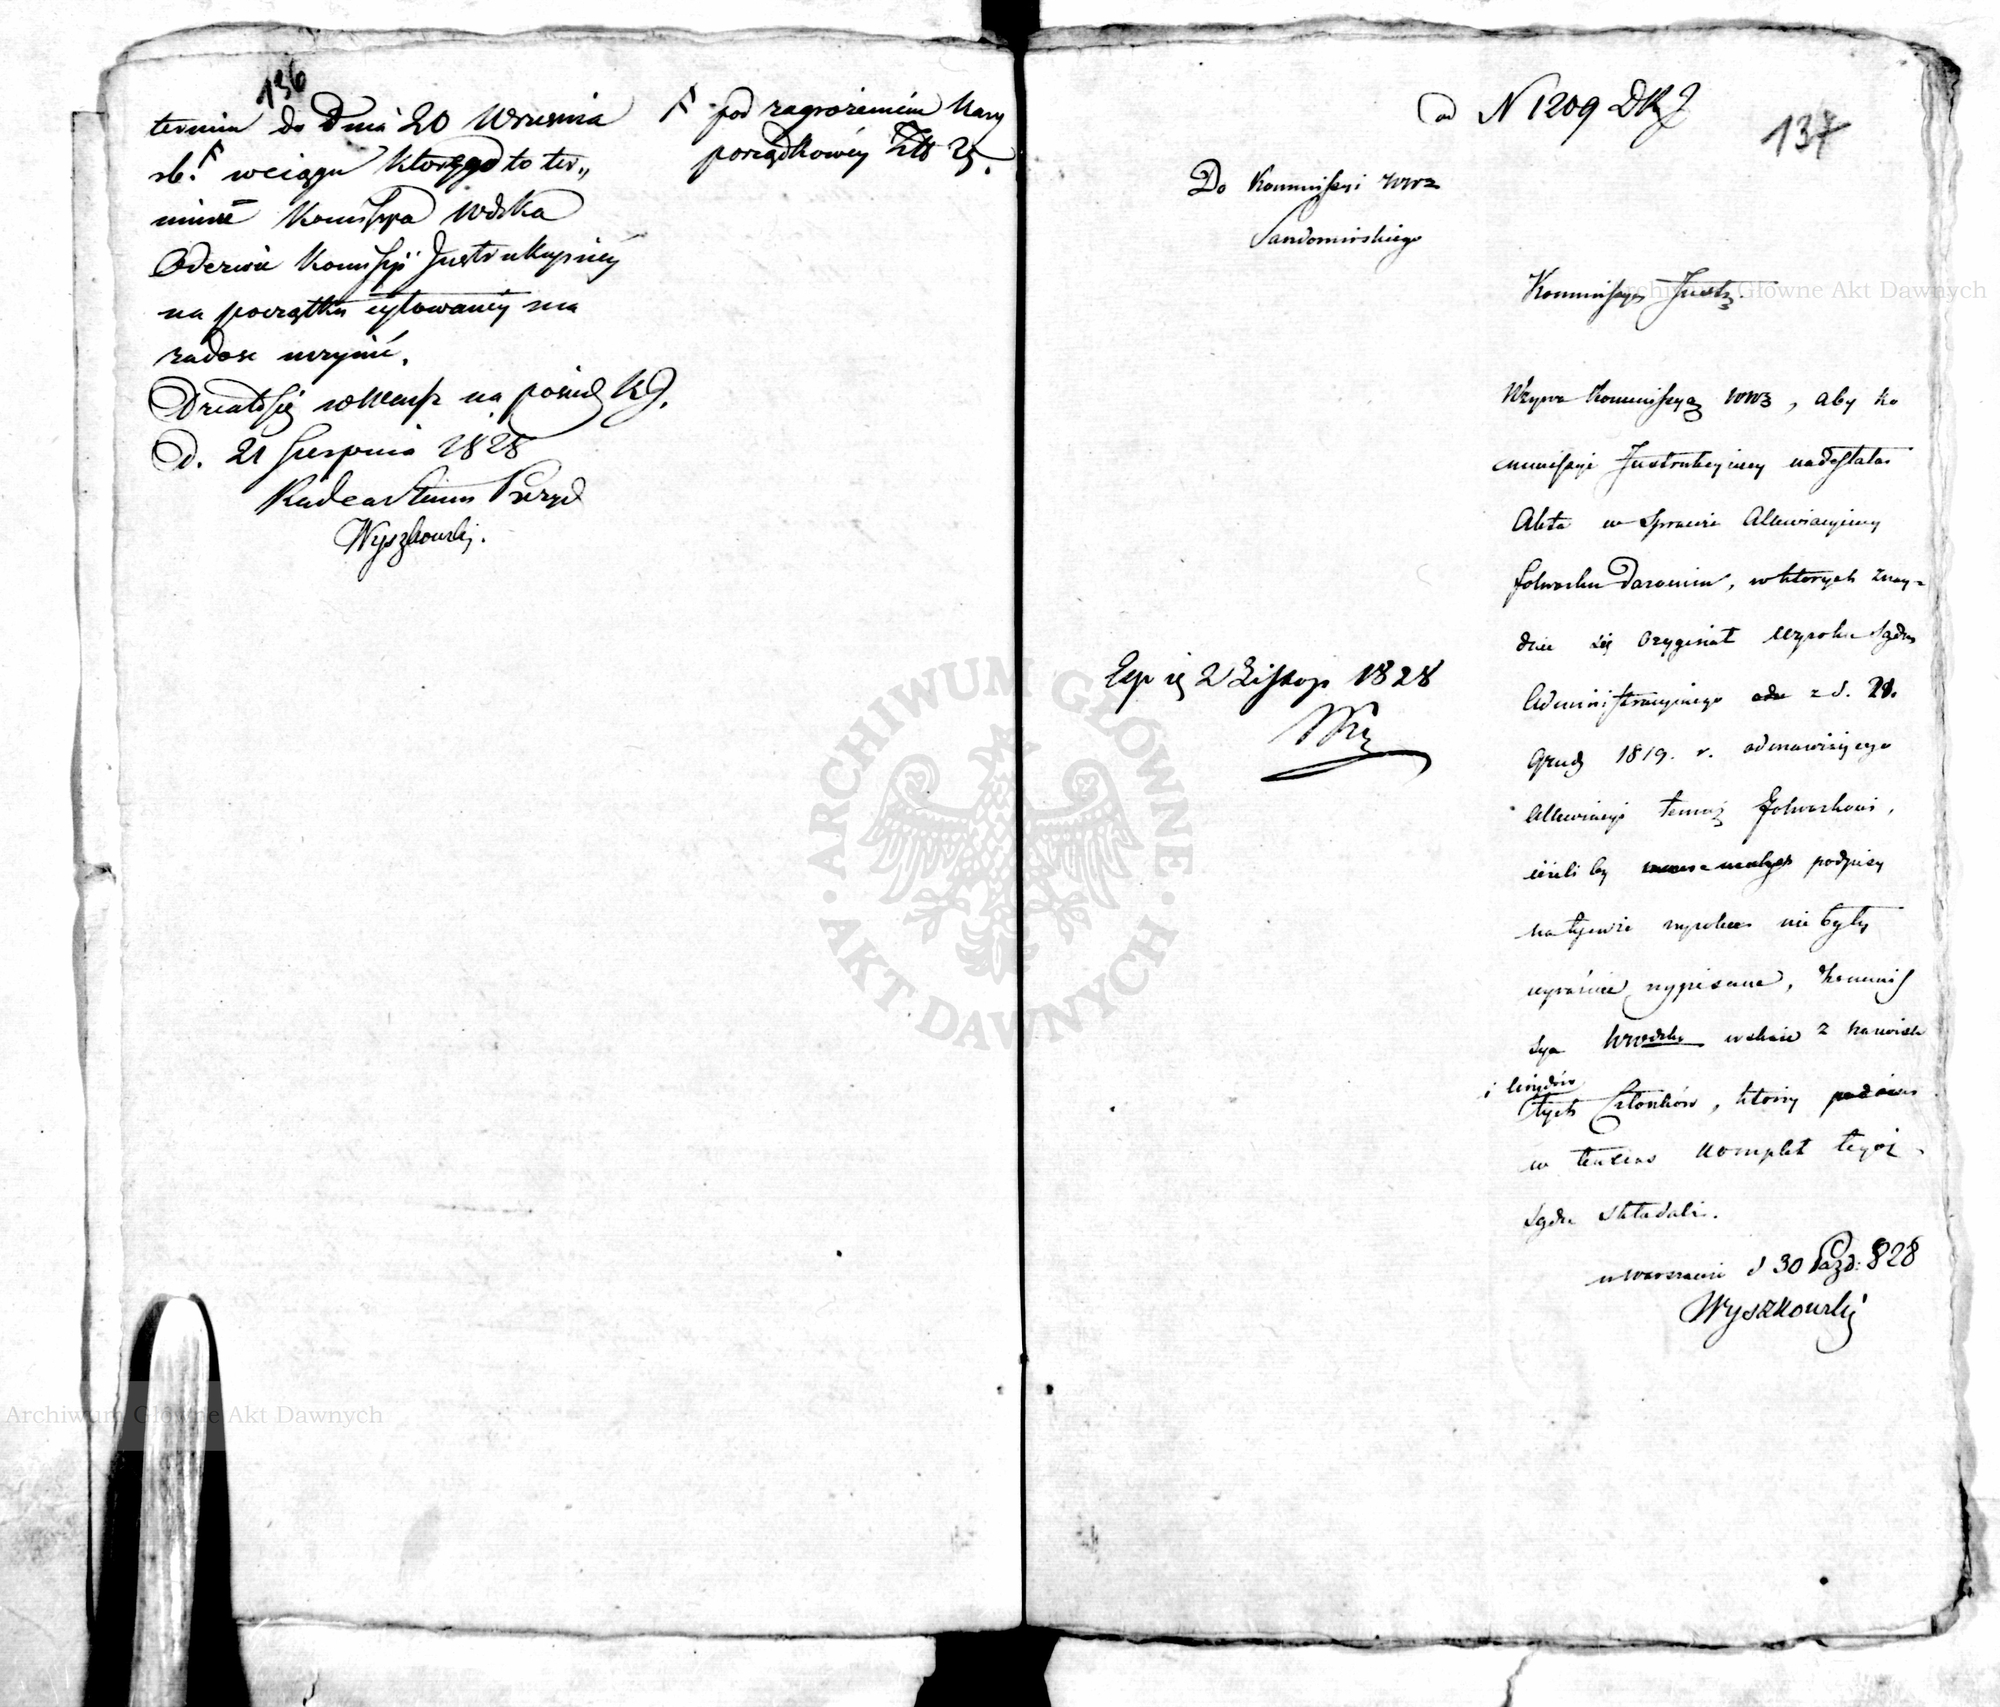 136
termin do Dnia 20 Września
rb. F wciągu którego to ter„
minu Komissya Wdzka
Odezwie Komissyi Instrukcyiney
na początku cytowaney ma
zadosc uczynić.
Działo się w na posiedz KJ.
D. 21 Sierpnia 1828
Radca Stanu Prezyd
Wyszkowski.
F pod zagrożeniem Kary
porządkowéy Złt 25.
ad N 1209 DKJ
137
Do Kommissyi WWa
Sandomirskiego
Kommissya Instr.
Wzywa Kommissyą WWa, aby Ko
mmissyi Instrukcyiney nadesłała
Akta w sprawie Allewiacyiney
folwarku Daromin, w których znay-
dzie się Oryginał Wyroku Sądu
Administracyinego z d. 21.
Grud 1819. r. odmawiaiącego
Allewiacyi temuż folwarkowi,
ieżeli by podpisy
na tymże wyroku nie były
wyraźnie wypisane, Kommis
sya Wwdzka wskaże z nazwisk
i Urzędów
tych Członków, którzy podówczas
w tenczas Komplet tegoż
Sądu składali.
w Warszawie d 30 Pazd: 828
Wyszkowski
Exp się 2 Listop 1828
ARCHIWUM GŁÓWNE AKT DAWNYCH
Archiwum Główne Akt Dawnych
Archiwum Główne Akt Dawnych